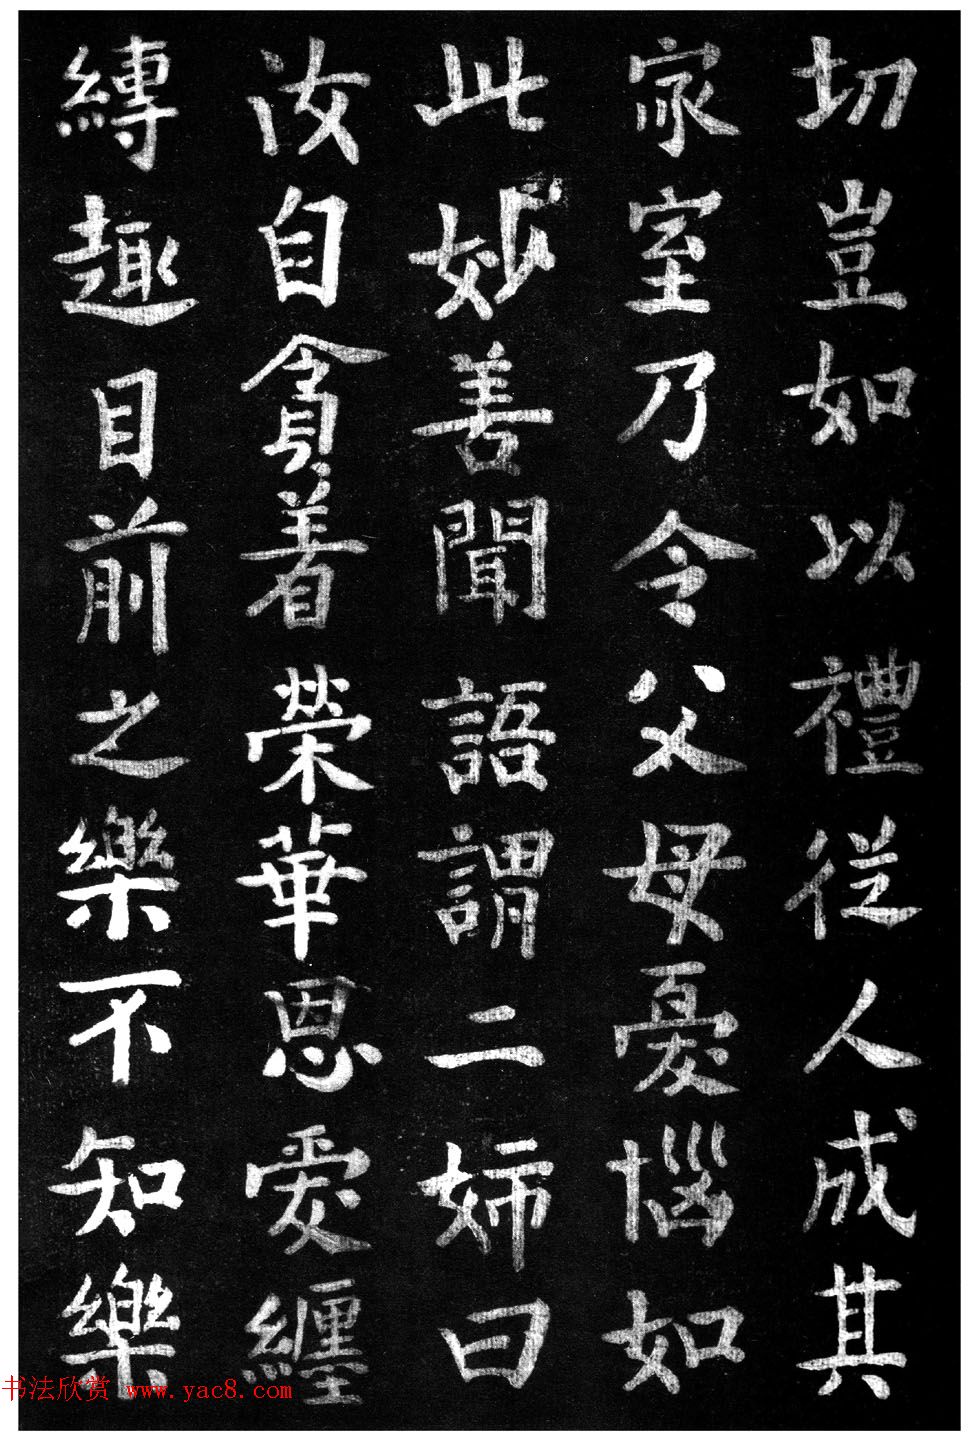 切豈如以禮從人成其
家室乃令父母憂惱如
此妙善聞語謂二婦曰
汝自貪着榮華恩愛纏
縛趣目前之樂不知樂
书法欣赏 www.yac8.com